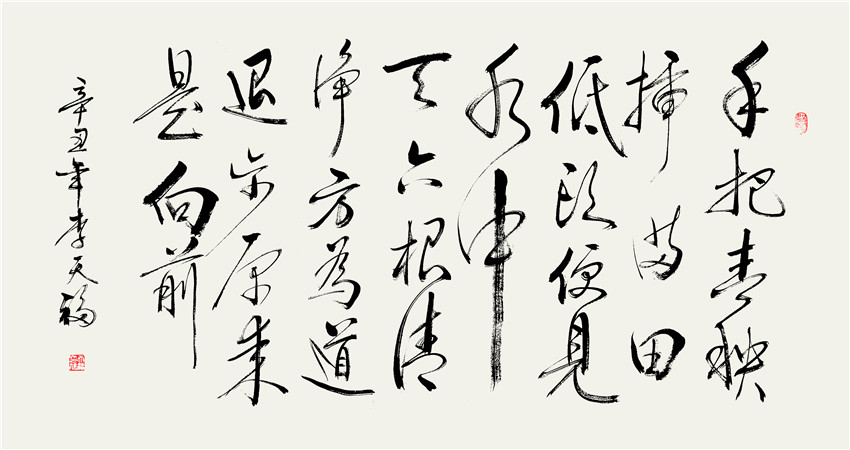 手把青秧
插满田
低头便见
水中
天六根清
净方为道
退步原来
是向前
辛丑年李天福